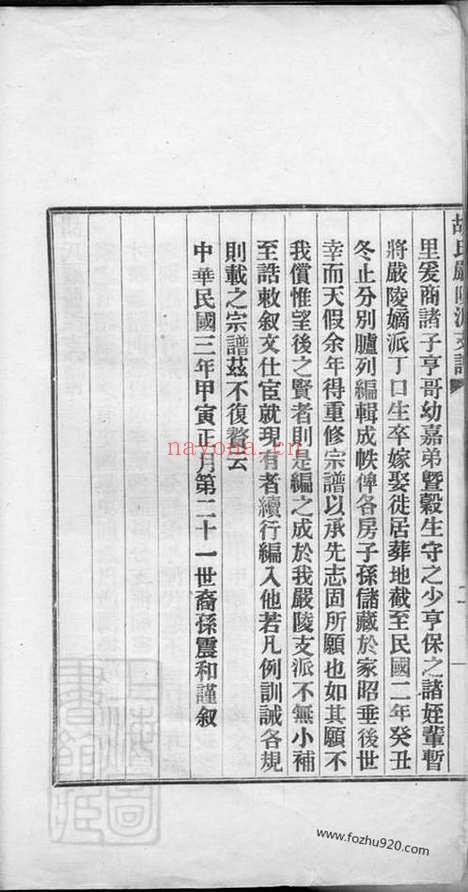 胡氏嚴陵派支譜
二
里爰商諸子亨哥幼嘉弟暨穀生守之少亨保之諸姪輩暫
將嚴陵嫡派丁口生卒嫁娶徙居葬地截至民國二年癸丑
冬止分別臚列編輯成帙俾各房子孫儲藏於家昭垂後世
幸而天假余年得重修宗譜以承先志固所願也如其願不
我償惟望後之賢者則是編之成於我嚴陵支派不無小補
至誥敕叙文仕宦就現有者續行編入他若凡例訓誡各規
則載之宗譜茲不復贅云
中華民國三年甲寅正月第二十一世裔孫震和謹叙
nayona.cn
www.fozhu920.com